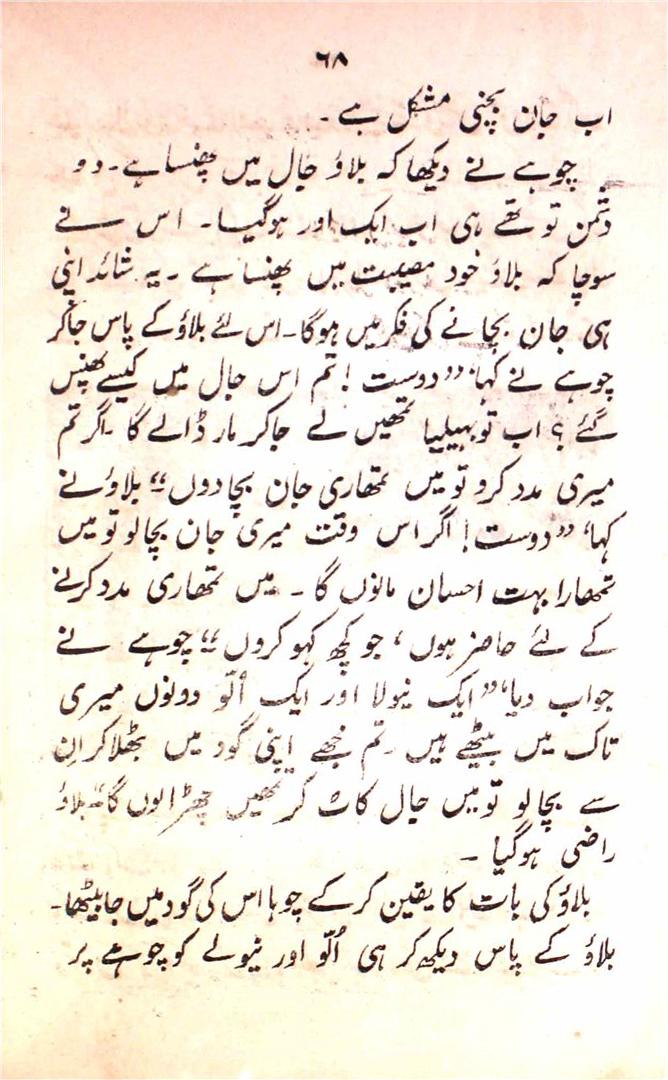 ۶۸
اب جان بچنی مشکل ہے ۔
چوہے نے دیکھا کہ بلاؤ جال میں پھنسا ہے۔ دو
دشمن تو تھے ہی اب ایک اور ہوگیا۔ اس نے
سوچا کہ بلاؤ خود مصیبت میں پھنسا ہے ۔ یہ شائد اپنی
ہی جان بچانے کی فکر میں ہوگا۔ اس لئے بلاؤ کے پاس جاکر
چوہے نے کہا، ”دوست ! تم اس جال میں کیسے پھنس
گئے ؟ اب تو بہیلیا تمھیں لے جاکر مار ڈالے گا ۔ اگر تم
میری مدد کرو تو میں تمھاری جان بچا دوں“ بلاؤ نے
کہا، ”دوست! اگر اس وقت میری جان بچالو تو میں
تمھارا بہت احسان مانوں گا ۔ میں تمھاری مدد کرنے
کے لئے حاضر ہوں ، جو کچھ کہو کروں“ چوہے نے
جواب دیا، ”ایک نیولا اور ایک اُلّو دونوں میری
تاک میں بیٹھے ہیں ۔ تم مجھے اپنی گود میں بٹھلا کر ان
سے بچالو تو میں جال کاٹ کر تمھیں چھڑا لوں گا“ بلاؤ
راضی ہوگیا ۔
بلاؤ کی بات کا یقین کرکے چوہا اس کی گود میں جا بیٹھا۔
بلاؤ کے پاس دیکھ کر ہی اُلّو اور نیولے کو چوہے پر